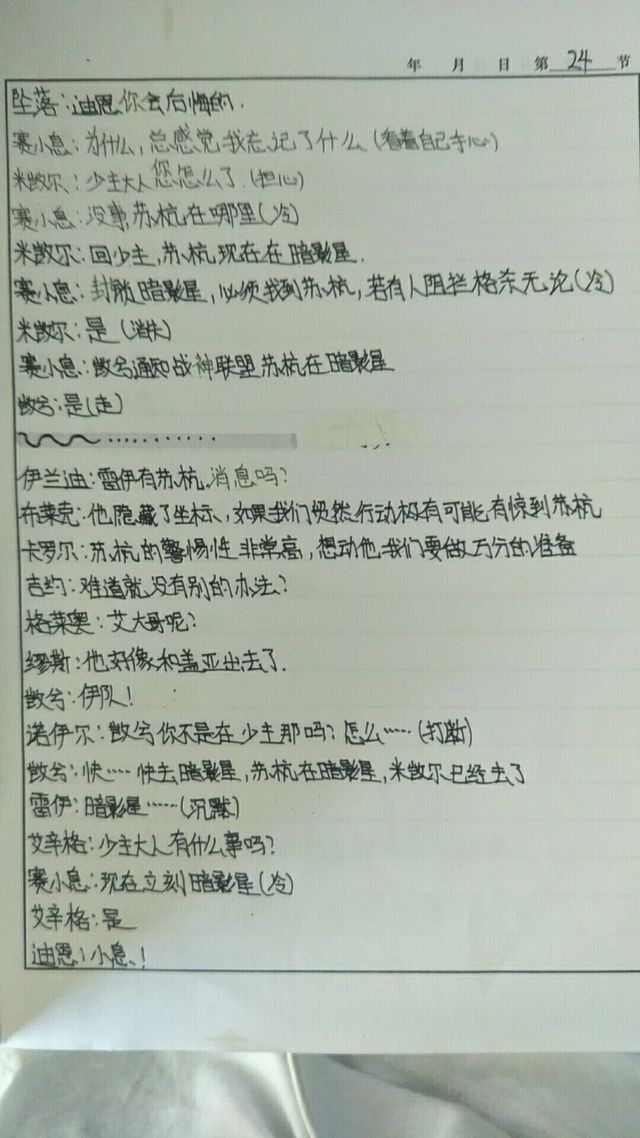 年 月 日 第 24 节
坠落：迪恩你会后悔的．
赛小息：为什么，总感觉我忘记了什么（看着自己手心）
米瑞尔：少主大人您怎么了．（担心）
赛小息：没事，苏杭在哪里（冷）
米瑞尔：回少主，苏杭现在在暗影星．
赛小息：封锁暗影星，必须找到苏杭，若有人阻拦格杀无论（冷）
米瑞尔：是（消失）
赛小息：散兮通知战神联盟苏杭在暗影星
散兮：是（走）
伊兰迪：雷伊有苏杭．消息吗？
布莱克：他隐藏了坐标、如果我们贸然行动极有可能有惊到苏杭
卡罗尔：苏杭的警惕性非常高，想动他我们要做万分的准备
吉约：难道就没有别的办法？
格莱奥：艾大哥呢？
缪斯：他好像和盖亚出去了．
散兮：伊队！
诺伊尔：散兮你不是在少主那吗？怎么……（打断）
散兮：快……快去暗影星，苏杭在暗影星，米瑞尔已经去了
雷伊：暗影星……（沉默）
艾辛格：少主大人有什么事吗？
赛小息：现在立刻暗影星（冷）
艾辛格：是
迪恩：小息！